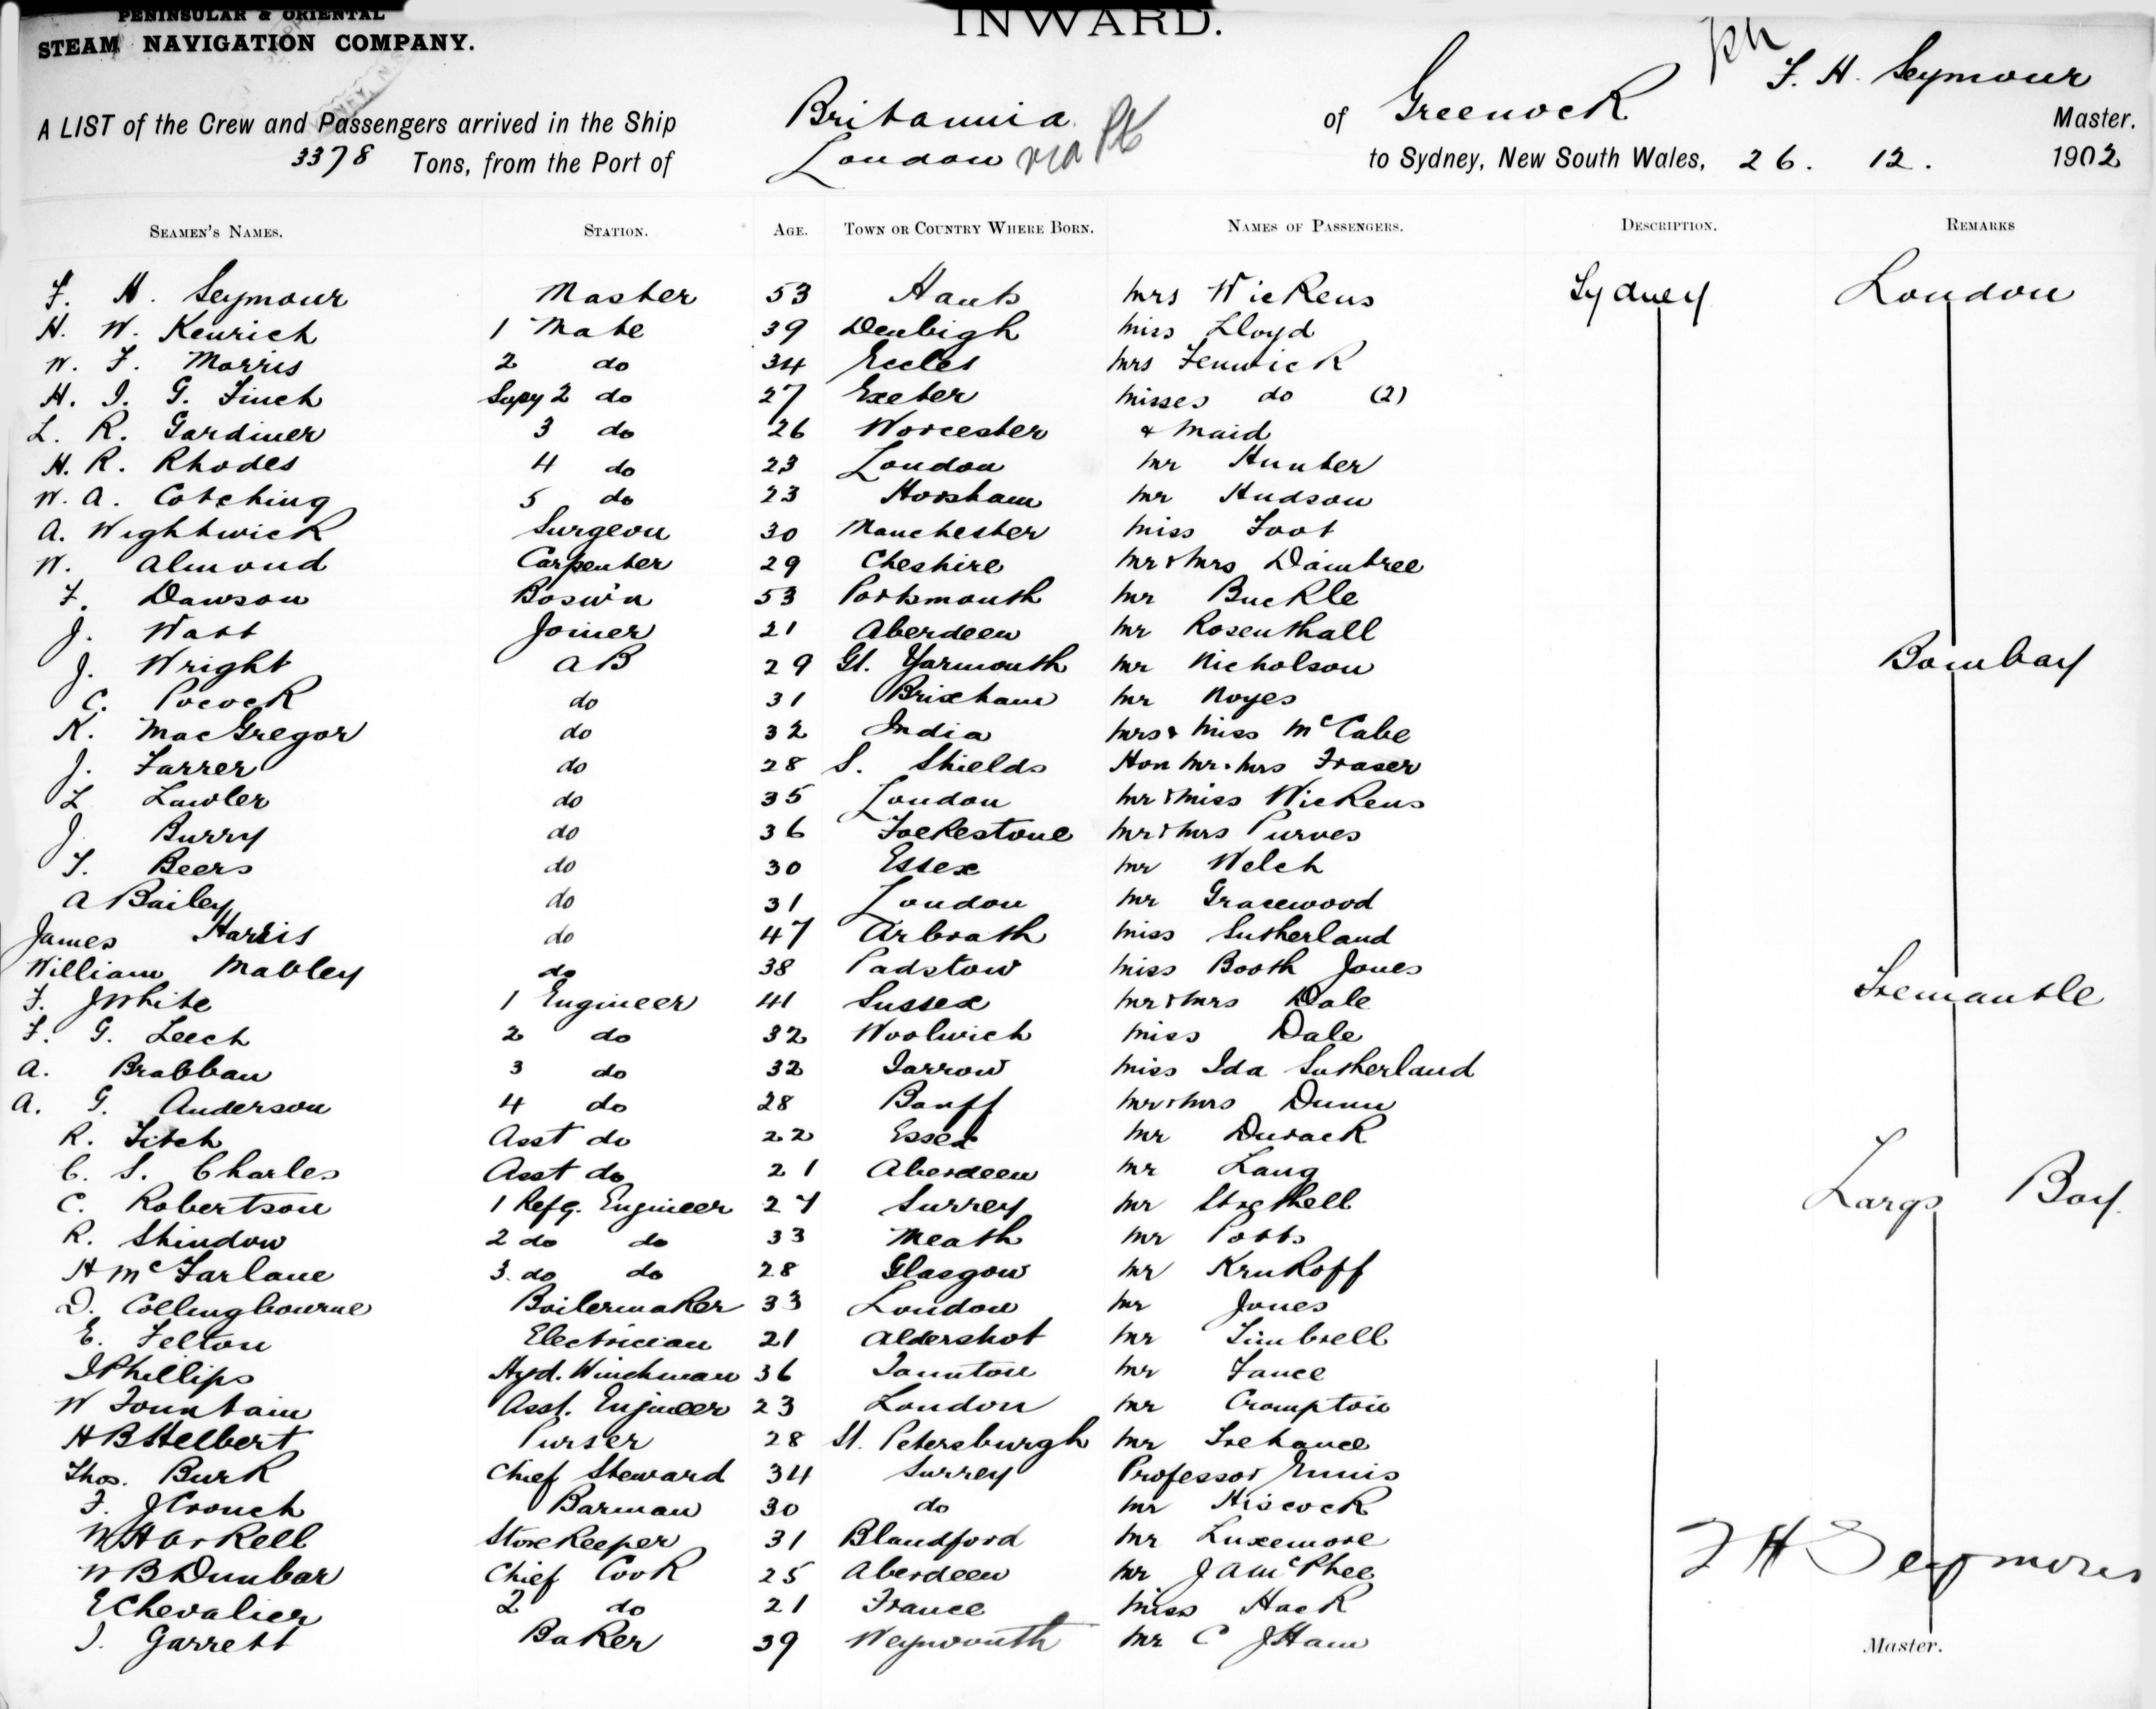 PENINSULAR & ORIENTAL
STEAM NAVIGATION COMPANY.
INWARD.
F. H. Seymour
A LIST of the Crew and Passengers arrived in the Ship Britannia of Greenock Master.
3378 Tons, from the Port of London via Pts to Sydney, New South Wales, 26. 12. 1902
SEAMEN'S NAMES. STATION. AGE. TOWN OR COUNTRY WHERE BORN. NAMES OF PASSENGERS. DESCRIPTION. REMARKS
F. H. Seymour Master 53 Hants Mrs Wickens Sydney London
H. W. Kenrick 1 Mate 39 Denbigh Miss Lloyd
W. F. Morris 2 do 34 Eccles Mrs Fenwick
H. I. G. Finch Supy 2 do 27 Exeter Misses do (2)
L. R. Gardiner 3 do 26 Worcester & Maid
H. R. Rhodes 4 do 23 London Mr Hunter
W. A. Cotching 5 do 23 Horsham Mr Hudson
A. Wightwick Surgeon 30 Manchester Miss Foot
W. Almond Carpenter 29 Cheshire Mr & Mrs Daintree
F. Dawson Bosw'n 53 Portsmouth Mr Buckle
J. Watt Joiner 21 Aberdeen Mr Rosenthall
J. Wright AB 29 Gt. Yarmouth Mr Nicholson Bombay
C. Pocock do 31 Brixham Mr Noyes
K. MacGregor do 32 India Mrs & Miss McCabe
J. Farrer do 28 S. Shields Hon Mr & Mrs Fraser
L Lawler do 35 London Mr & Miss Wickens
J. Burry do 36 Foekestone Mr & Mrs Purves
T. Beers do 30 Essex Mr Welch
A Bailey do 31 London Mr Gracewood
James Harris do 47 Arbroath Miss Sutherland
William Mabley do 38 Padstow Miss Booth Jones
F. J White 1 Engineer 41 Sussex Mr & Mrs Dale Fremantle
F. G. Leech 2 do 32 Woolwich Miss Dale
A. Brabban 3 do 32 Jarrow Miss Ida Sutherland
A. G. Anderson 4 do 28 Banff Mr & Mrs Dunn
R. Fitch Asst do 22 Essex Mr Durack
C. S. Charles Asst do 21 Aberdeen Mr Lang
C. Robertson 1 Refg. Engineer 27 Surrey Mr Largs Bay
R. Shindow 2 do do 33 Meath Mr Potts
H McFarlane 3. do do 28 Glasgow Mr Krukoff
D. Collingbourne Boilermaker 33 London Mr Jones
E. Felton Electrician 21 Aldershot Mr Timbrell
J Phillips Hyd. Winchman 36 Taunton Mr Fance
W Fountain Asst. Engineer 23 London Mr Crompton
H B Helbert Purser 28 St. Petersburgh Mr Trehance
Thos. Burk Chief Steward 34 Surrey Professor Ennis
F. J Crouch Barman 30 do Mr Hiscock
W H Arkell Storekeeper 31 Blandford Mr Luxemore
W B Dunbar Chief Cook 25 Aberdeen Mr J A McPhee F H Seymour
E Chevalier 2 do 21 France Miss Hack
J. Garrett Baker 39 Weymouth Mr C J Ham Master.